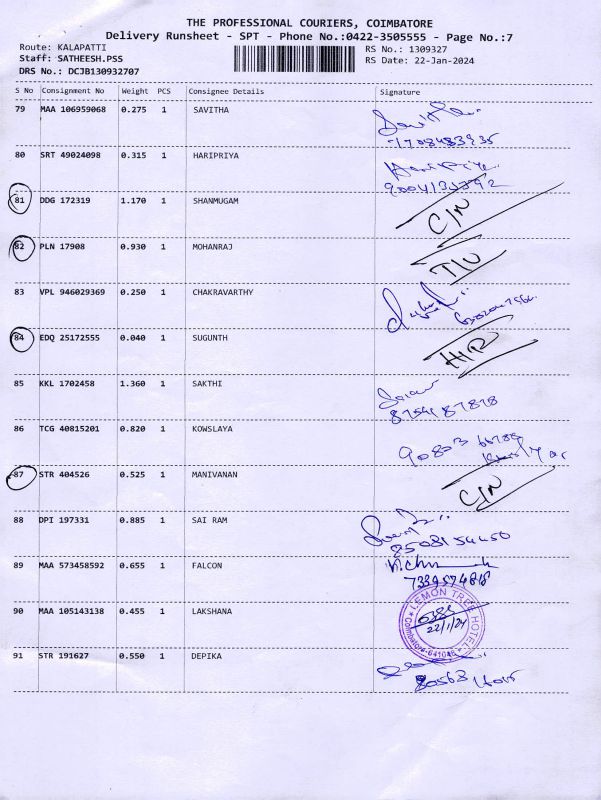 THE PROFESSIONAL COURIERS, COIMBATORE
Delivery Runsheet - SPT - Phone No.:0422-3505555 - Page No.:7
Route: KALAPATTI RS No.: 1309327
Staff: SATHEESH.PSS RS Date: 22-Jan-2024
DRS No.: DCJB130932707
S No Consignment No Weight PCS Consignee Details Signature
79 MAA 106959068 0.275 1 SAVITHA
80 SRT 49024098 0.315 1 HARIPRIYA
Haripriya
81 DDG 172319 1.170 1 SHANMUGAM C/N
82 PLN 17908 0.930 1 MOHANRAJ T/U
83 VPL 946029369 0.250 1 CHAKRAVARTHY
84 EDQ 25172555 0.040 1 SUGUNTH
85 KKL 1702458 1.360 1 SAKTHI
8754187878
86 TCG 40815201 0.820 1 KOWSLAYA
90803
87 STR 404526 0.525 1 MANIVANAN C/N
88 DPI 197331 0.885 1 SAI RAM
8508154450
89 MAA 573458592 0.655 1 FALCON
7339574818
90 MAA 105143138 0.455 1 LAKSHANA
LEMON TREE HOTEL
22/1/24
Coimbatore-641014
91 STR 191627 0.550 1 DEPIKA
80563